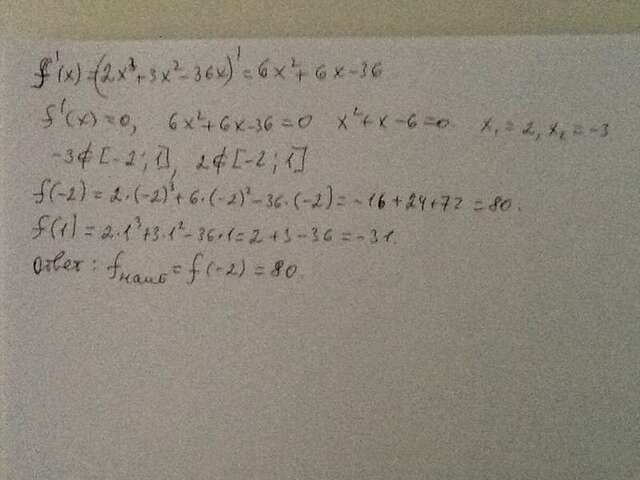 f'(x)=(2x³+3x²-36x)'=6x²+6x-36
f'(x)=0, 6x²+6x-36=0 x²+x-6=0 x₁=2, x₂=-3
-3∉[-2;1], 2∉[-2;1]
f(-2)=2·(-2)³+6·(-2)²-36·(-2)=-16+24+72=80.
f(1)=2·1³+3·1²-36·1=2+3-36=-31.
Ответ: fнаиб=f(-2)=80